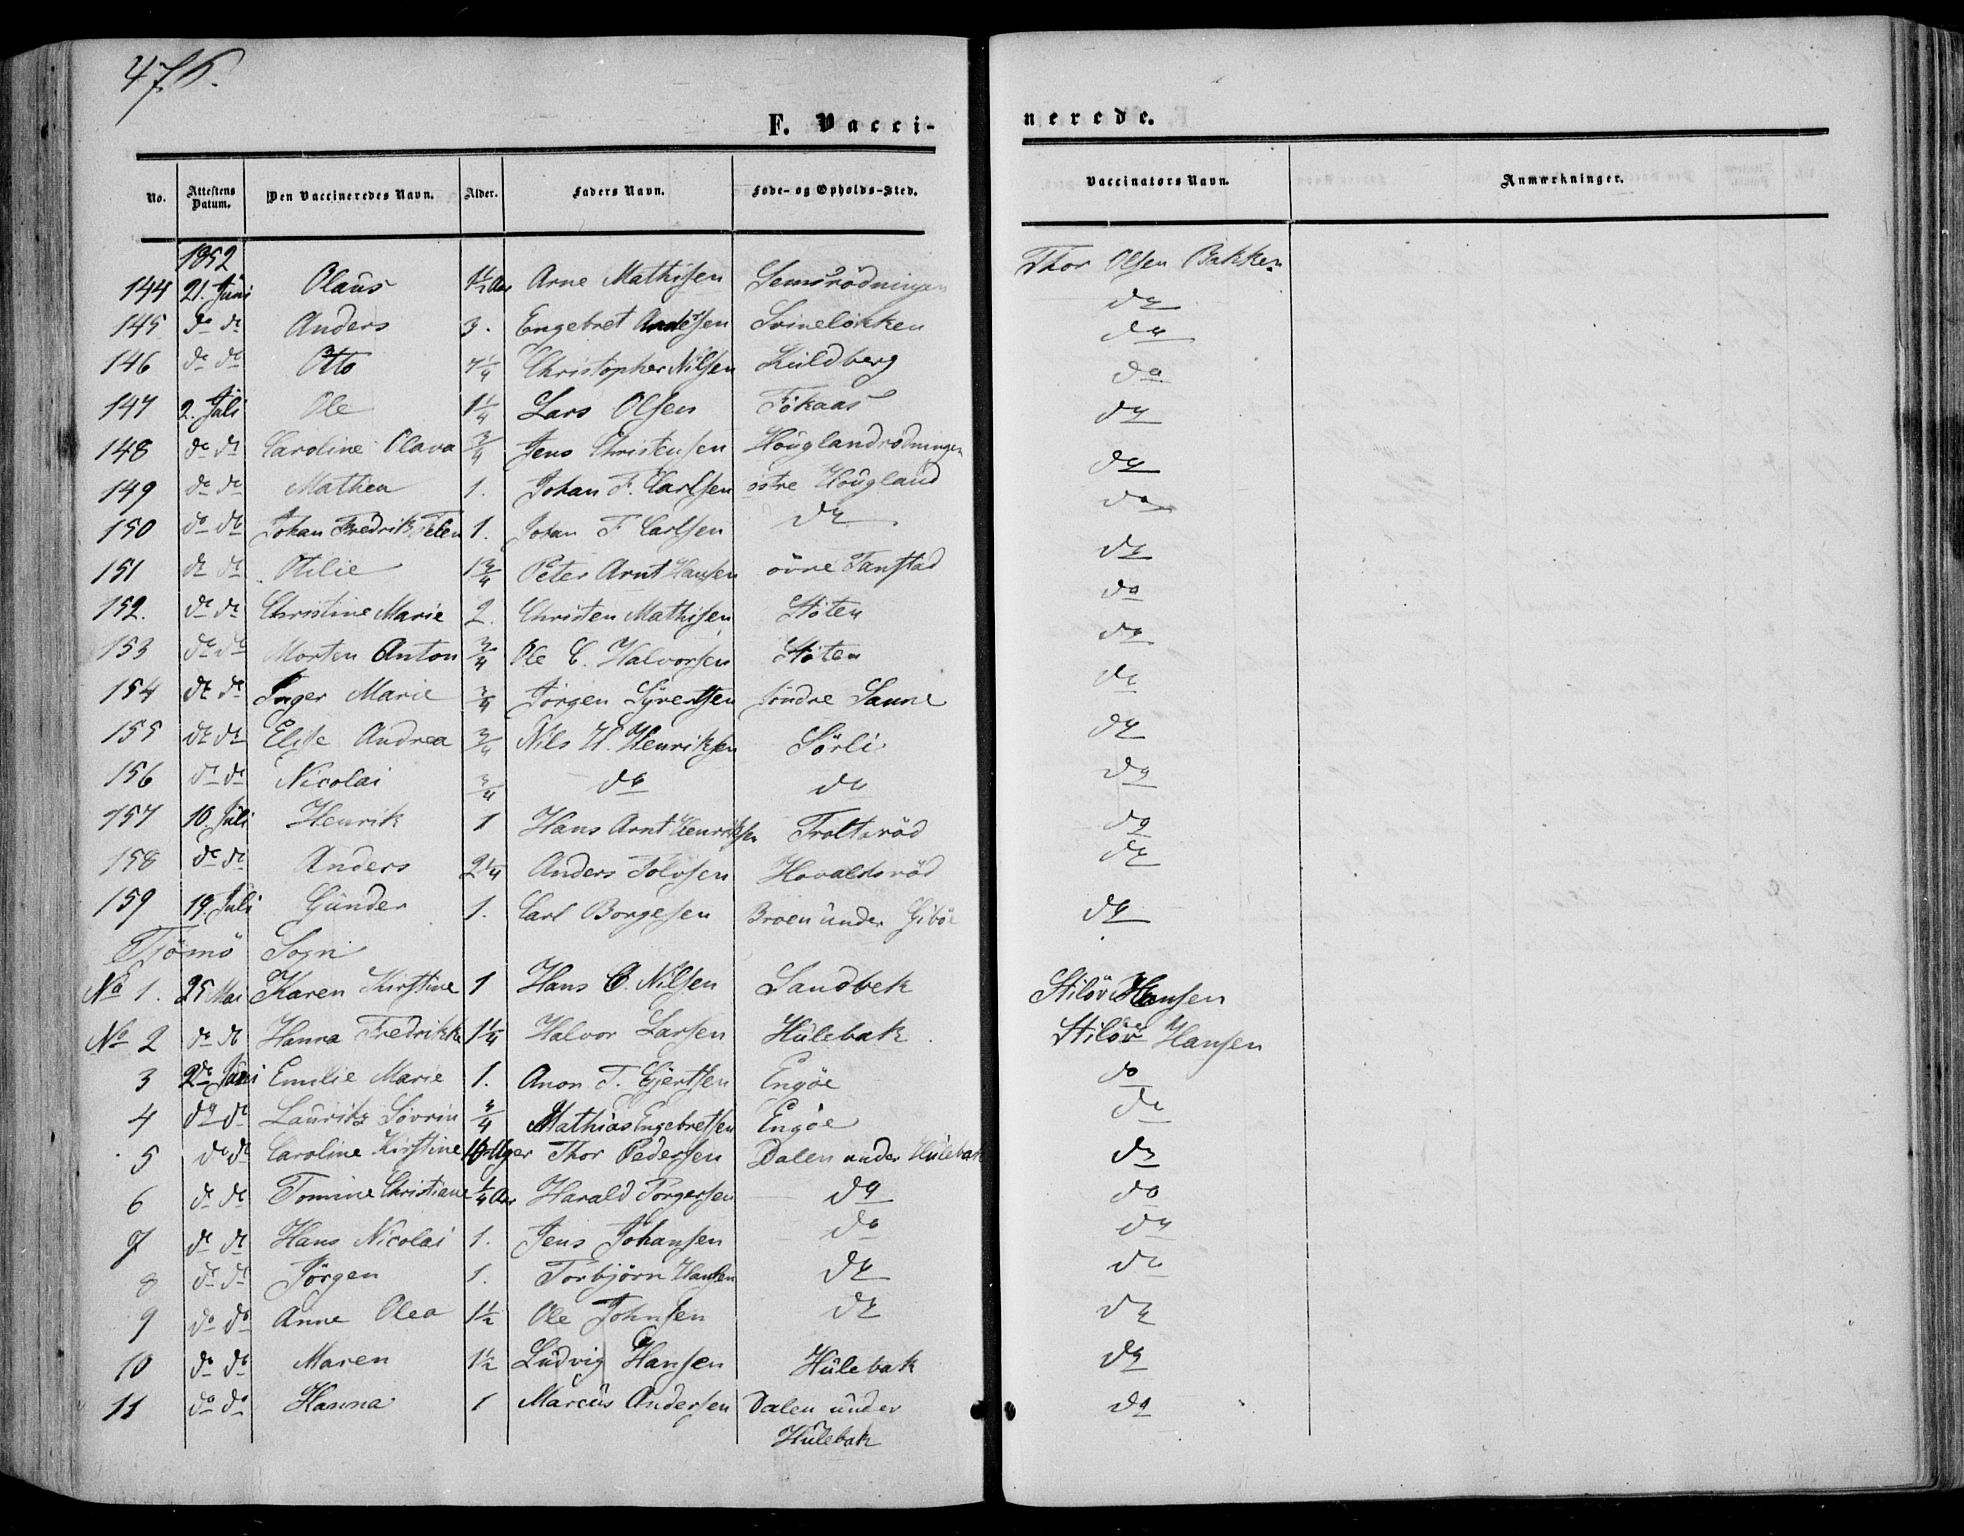 476.
F. Vacci-nerede.
No. | Attestens Datum. | Den Vaccineredes Navn. | Alder. | Faders Navn. | Føde- og Opholds-Sted. | Vaccinators Navn. | Anmærkninger.
1852
144 | 21. Juni | Olaus | 1 1/2 Aar | Arne Mathisen | Semsrödningen | Thor Olsen Bakken
145 | do do | Anders | 3. | Engebret Andersen | Svinelökken | do
146 | do do | Otto | 1/4 | Christopher Nilsen | Kuldberg | do
147 | 2. Juli | Ole | 1 1/4 | Lars Olsen | Fökaas | do
148 | do do | Caroline Olava | 3/4 | Jens Christensen | Houglandrodningen | do
149 | do do | Mathea | 1. | Johan F. Carlsen | östre Hougland | do
150 | do do | Johan Fredrik | 1. | Johan F Carlsen | do | do
151 | do do | Otilie | 1 3/4 | Peter Arnt Hansen | övre Tanstad | do
152. | do do | Christine Marie | 2. | Christen Mathisen | Stöten | do
153 | do do | Morten Anton | 3/4 | Ole C. Halvorsen | Stöten | do
154 | do do | Inger Marie | 3/4 | Jörgen Syvertsen | söndre Sanne | do
155 | do do | Elise Andrea | 3/4 | Nils H. Henriksen | Sörli | do
156 | do do | Nicolai | 3/4 | do | do | do
157 | 10 Juli | Henrik | 1 | Hans Arnt Henriksen | Troltsröd | do
158 | do do | Anders | 2 1/4 | Anders Tolvsen | Hovaldsröd | do
159 | 19. Juli | Gunder | 1. | Carl Borgesen | Broen under Giböe | do
Tjömö Sogn
No 1. | 25 Mai | Karen Kirstine | 1 | Hans C. Nilsen | Sandbek | Stilöv Hansen
No 2 | do do | Hanna Fredrikke | 1 1/4 | Halvor Larsen | Hulebak | Stilöv Hansen
3 | 2de Juni | Emilie Marie | 1. | Anon T. Gjertsen | Engöe | do
4 | do do | Lauritz Sövrin | 3/4 | Mathias Engebretsen | Engöe | do
5 | do do | Caroline Kirstine | 10 Uger | Thor Pedersen | Dalen under Hulebak | do
6 | do do | Tomine Christiane | 1/4 Aar | Harald Torgersen | do | do
7 | do do | Hans Nicolai | 1. | Jens Johansen | do | do
8 | do do | Jörgen | 1. | Torbjörn Hansen | do | do
9 | do do | Anne Olea | 1 1/2 | Ole Johnsen | do | do
10 | do do | Maren | 1 1/2 | Ludvig Hansen | Hulebak | do
11 | do do | Hanna | 1 | Marcus Andersen | Dalen under | do
Hulebak